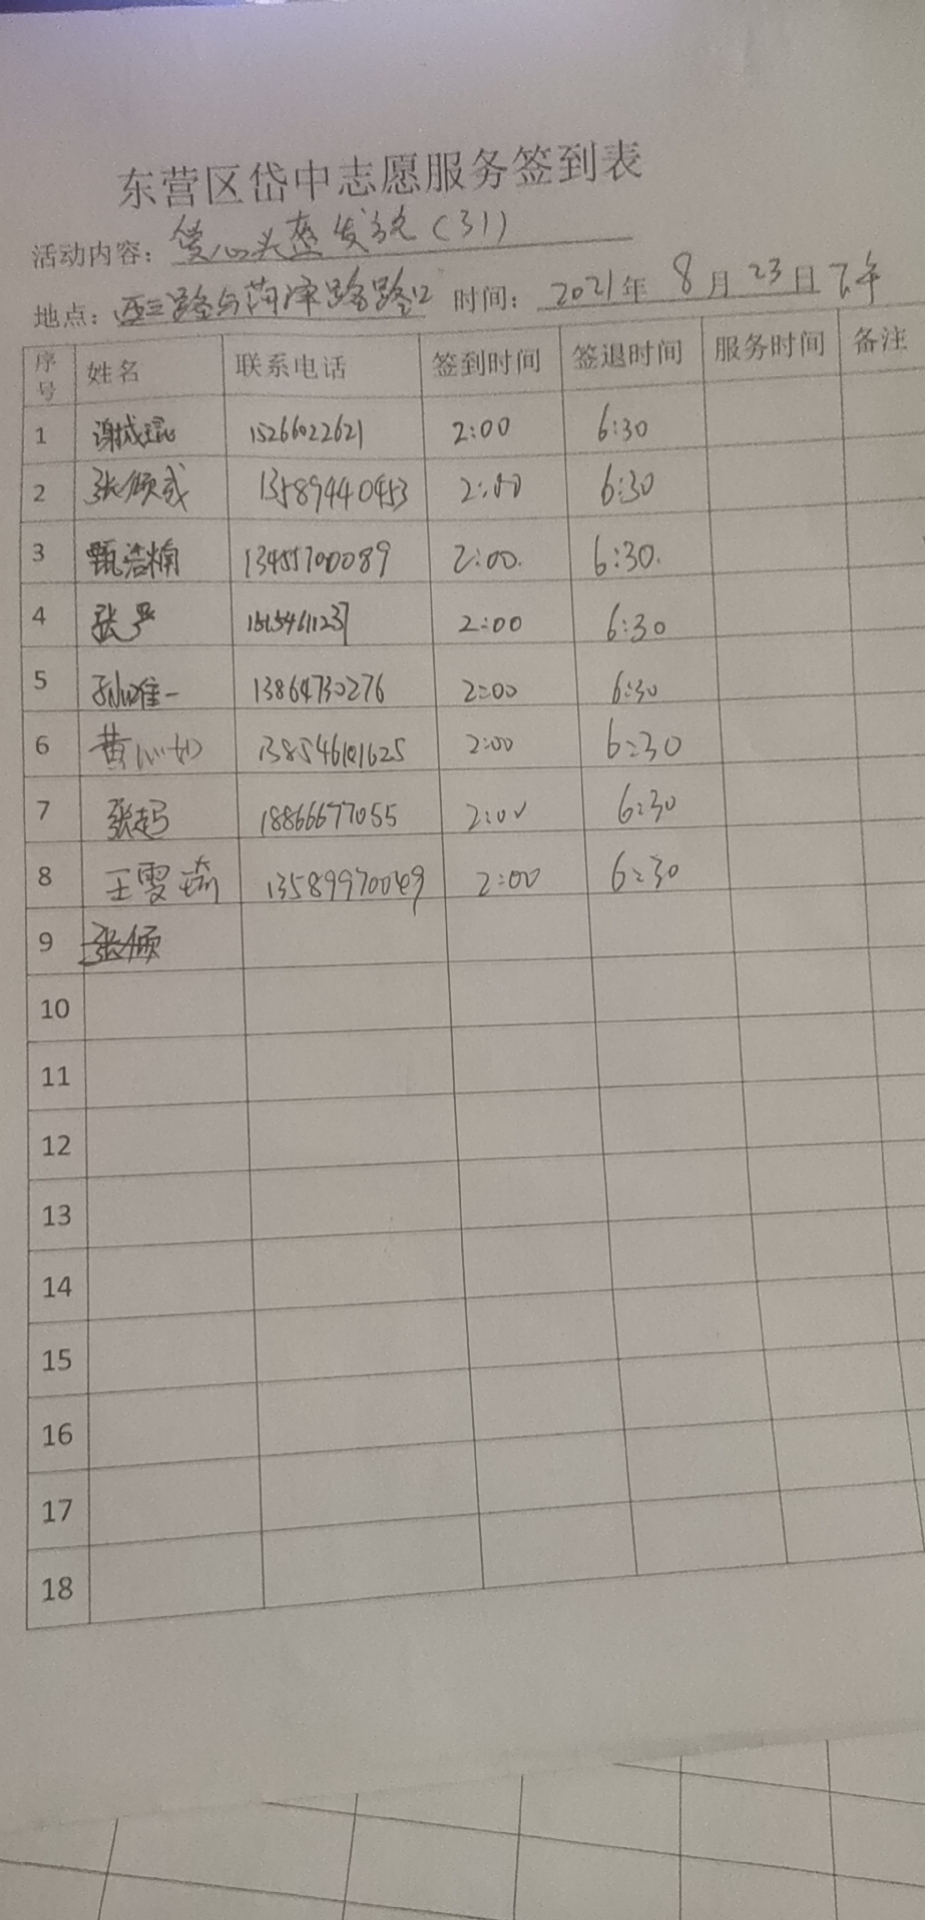 东营区岱中志愿服务签到表
活动内容：爱心头盔发放（31）
地点：西三路与菏泽路路口 时间：2021年8月23日下午
序号 姓名 联系电话 签到时间 签退时间 服务时间 备注
1 谢成琨 15266022621 2:00 6:30
2 张倾或 13589440453 2:00 6:30
3 甄浩楠 13455700089 2:00. 6:30.
4 张严 15154611237 2:00 6:30
5 孙唯一 13864730276 2:00 6:30
6 黄心如 138546101625 2:00 6:30
7 张起 18866677055 2:00 6:30
8 王雯 13589970049 2:00 6:30
9 张倾
10
11
12
13
14
15
16
17
18